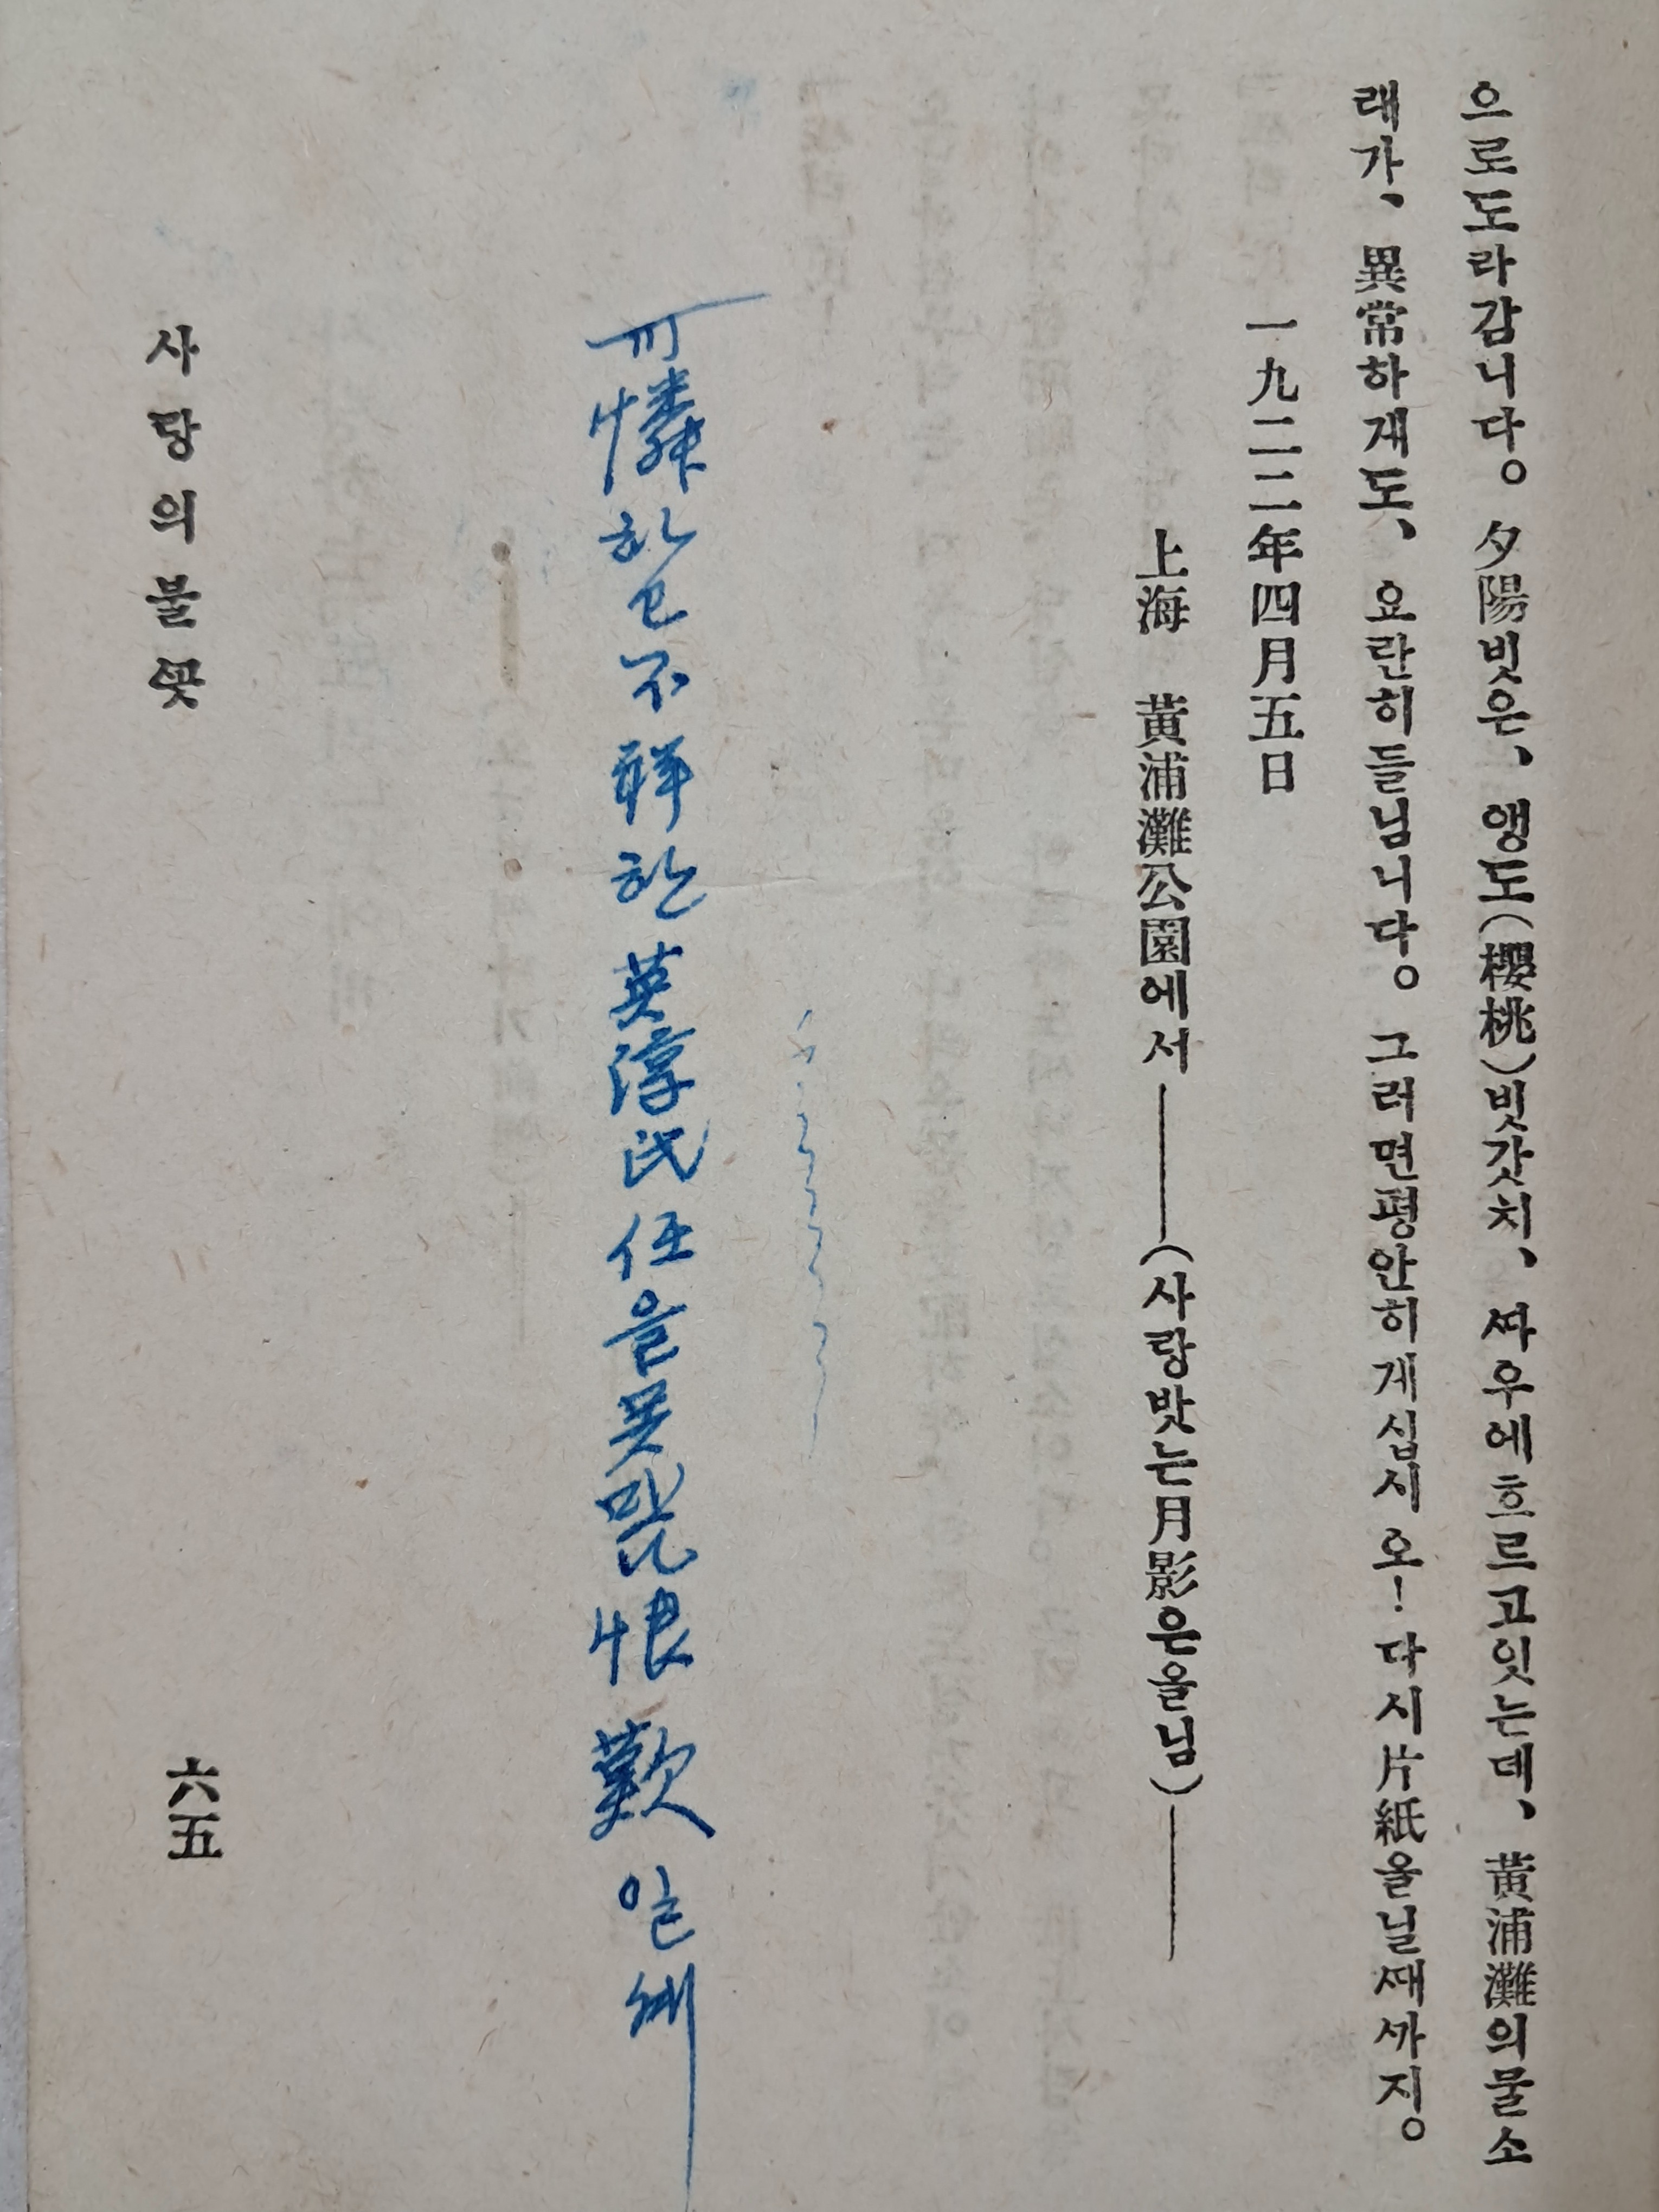 으로도라감니다。夕陽빗은、앵도(櫻桃)빗갓치、ᄯᅥ우에흐르고잇는데、黃浦灘의물소
래가、異常하게도、요란히들님니다。그러면평안히게십시오!다시片紙올닐ᄯᅢᄭᅡ지。
一九二二年四月五日
上海 黃浦灘公園에서――(사랑밧는月影은올님)――
하고 不祥한 英淳氏 任을 못 恨歎
사랑의불ᄭᅩᆺ
六五